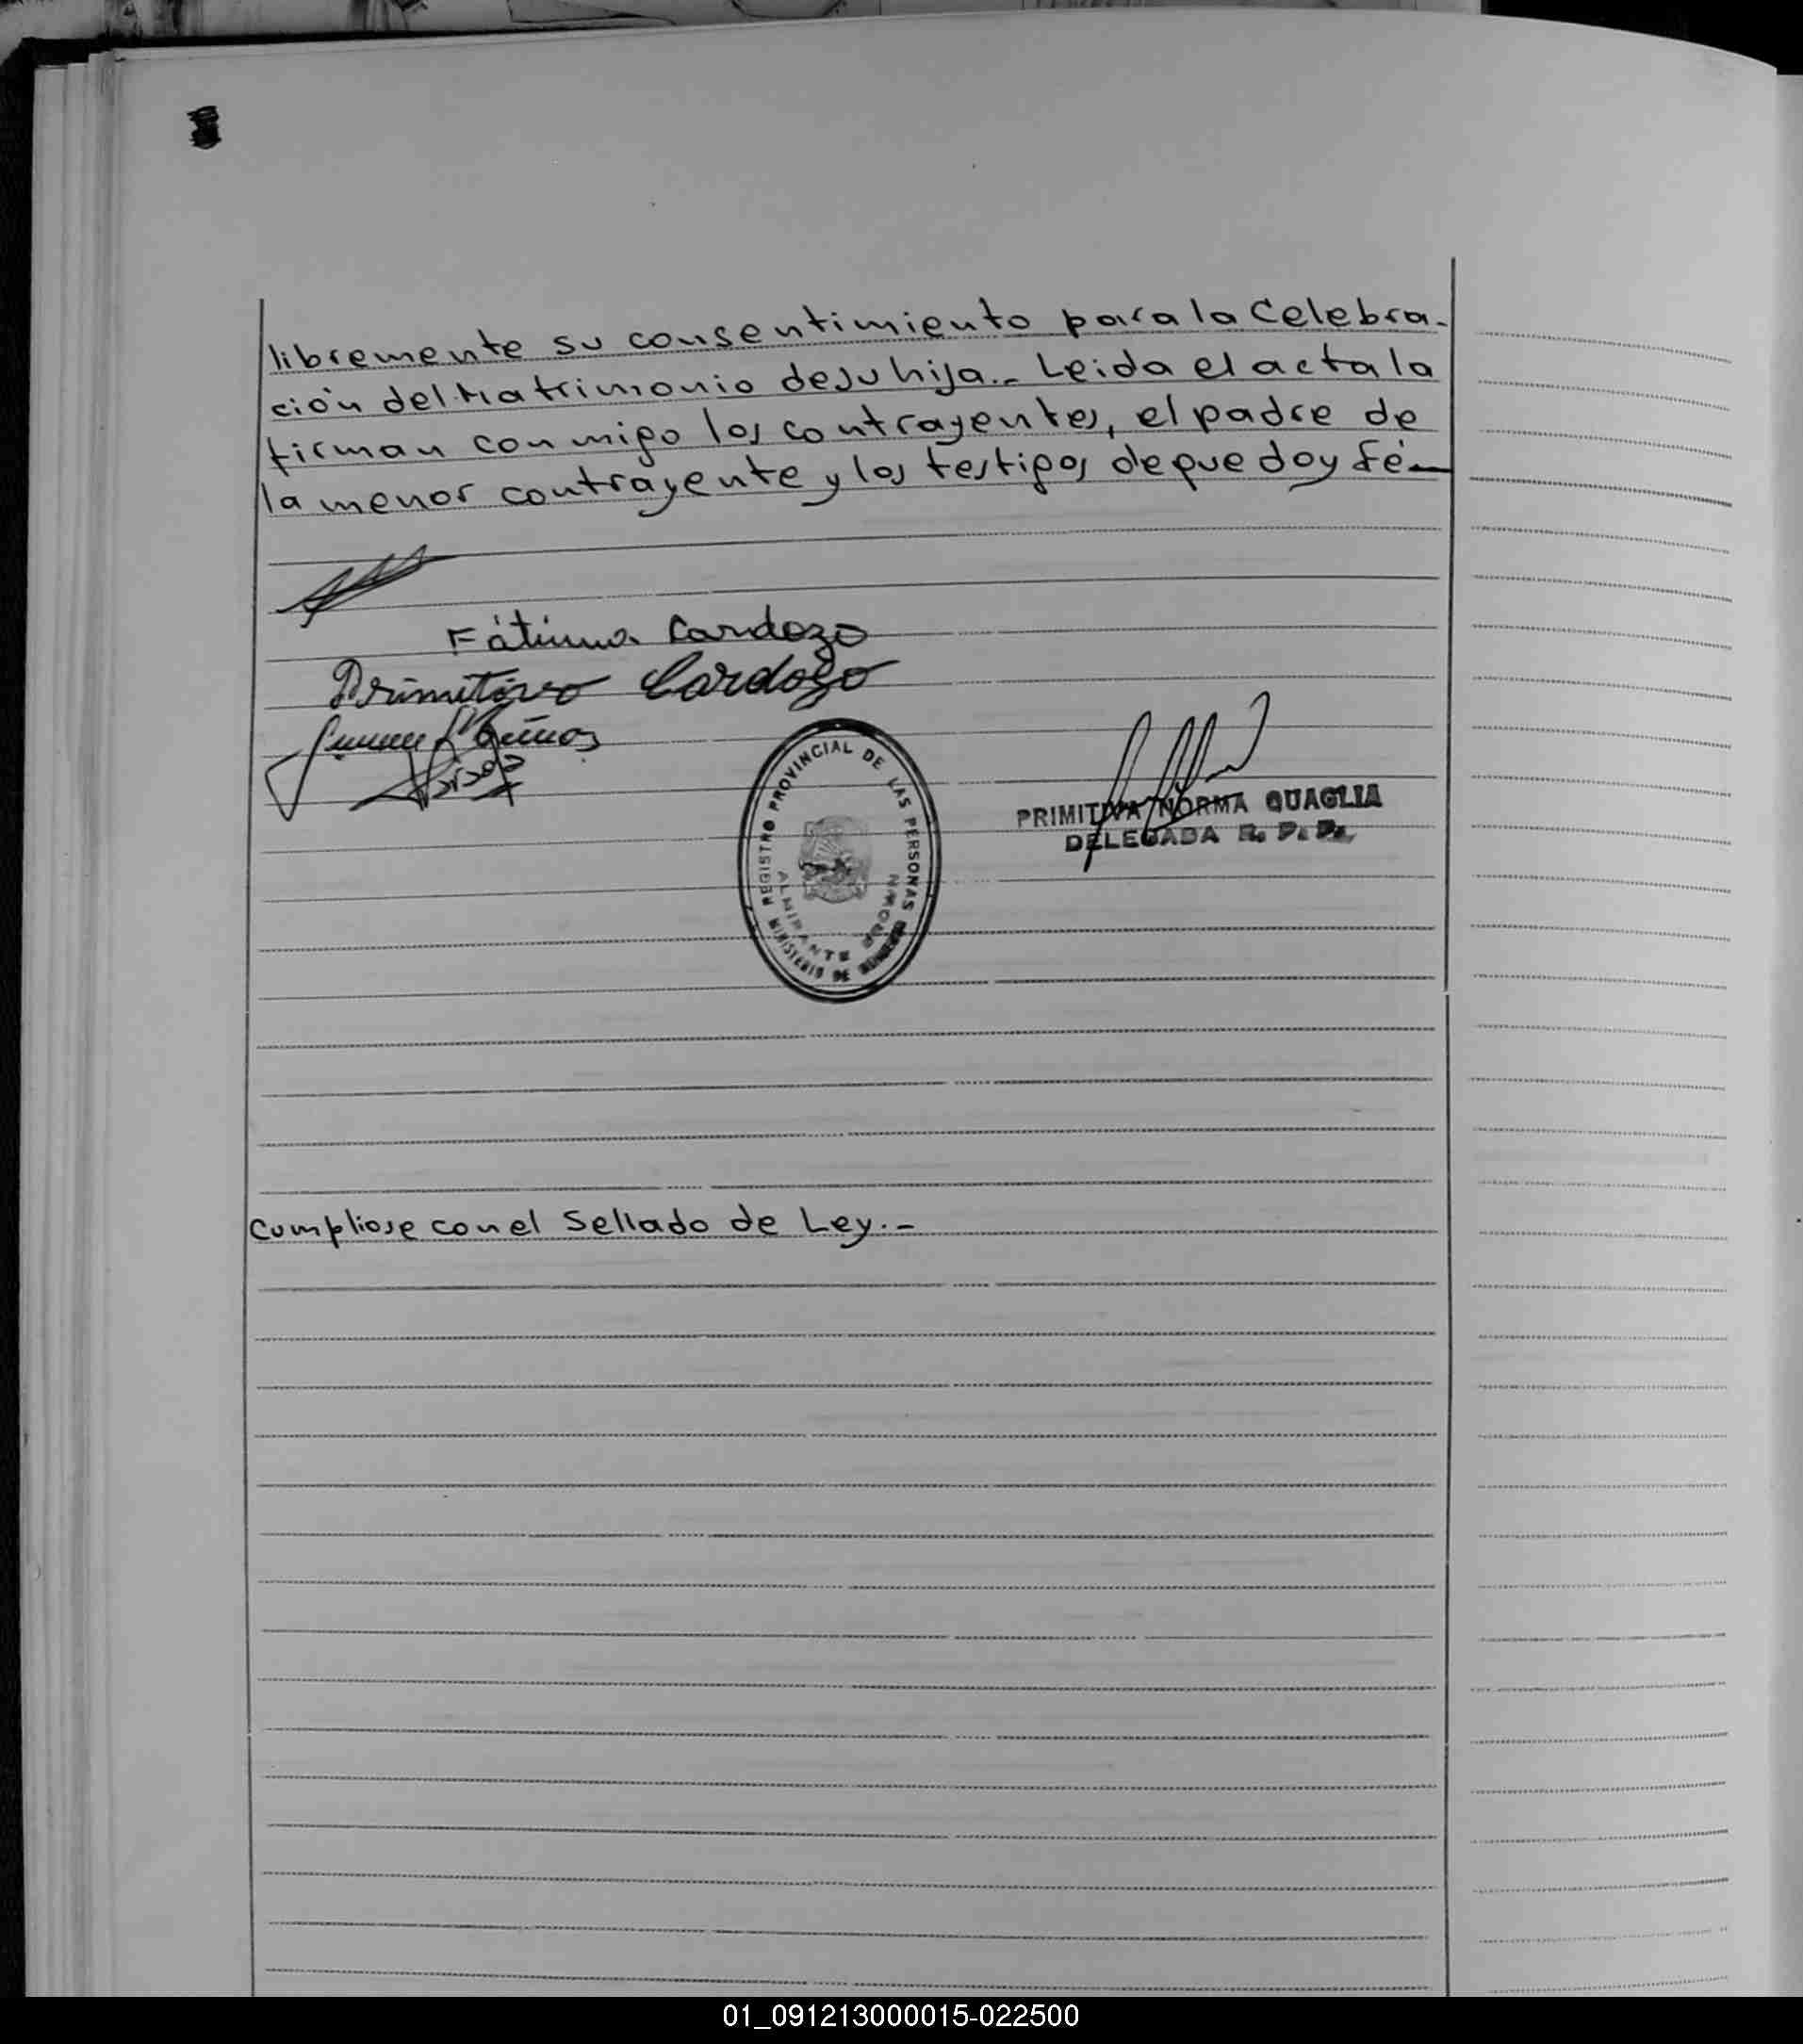 libremente su consentimiento para la Celebra-
ción del Matrimonio de su hija.- Leida el acta la
firman conmigo los contrayentes, el padre de
la menor contrayente y los testigos de que doy fé-
Fátima Cardozo
Primitivo Cardozo
REGISTRO PROVINCIAL DE LAS PERSONAS
MINISTERIO DE
ALMIRANTE BROWN
PRIMITIVA NORMA QUAGLIA
DELEGADA R. P. P.
Cumpliose con el Sellado de Ley.-
01_091213000015-022500